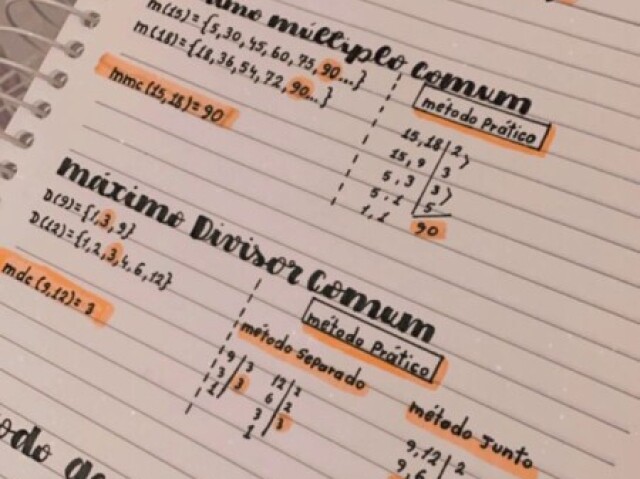 múltiplo comum
m(15)={5,30,45,60,75,90...}
m(18)={18,36,54,72,90...}
mmc(15,18)=90
método Prático
15,18|2
15,9|3
5,3|3
5,1|5
1,1
90
máximo Divisor comum
D(9)={1,3,9}
D(12)={1,2,3,4,6,12}
mdc(9,12)=3
método Prático
método Separado
9|3 12|2
3|3 6|2
1 3|3
1
método Junto
9,12|2
9,6